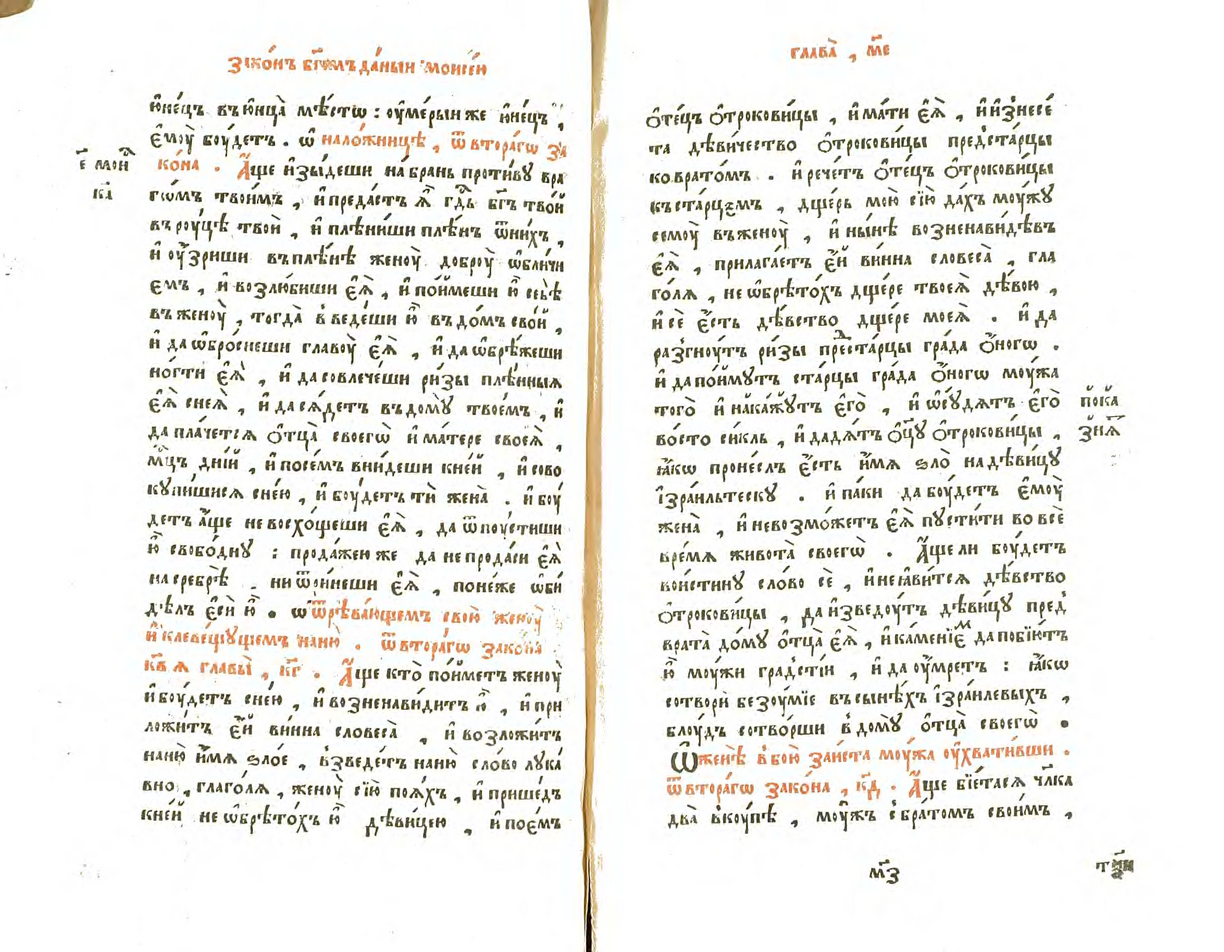 Зако́нъ бг҃омъ да́нныи моисе́ꙋ
ю҆не́цъ въ ю҆нца̀ мѣ́стѡ : оу҆ме́рыи же ю҆не́цъ ,
є҆моу̀ боу́детъ . ѡ҆ нало́жницѣ , ѿ втора́гѡ за
є҃ мои҆
ко́на . А҆́ще и҆зы́деши на бра́нь проти́вꙋ вра
ка҃
гѡ́мъ твои́мъ , и҆ преда́стъ ѧ҆̀ гд҇ь бг҃ъ тво́й
въ роу́цѣ твоѝ , и҆ плѣни́ши плѣ́нъ ѿ ни́хъ ,
и҆ оу҆́зриши въ плѣ́нѣ женоу̀ доброу̀ ѡ҆бли́чи
емъ , и҆ возлю́биши є҆ѧ̀ , и҆ по́ймеши ю҆̀ себѣ̀
въ женоу̀ , тогда̀ введе́ши ю҆̀ въ до́мъ сво́й ,
и҆ да ѡ҆бро́снеши главоу̀ є҆ѧ̀ , и҆ да ѡ҆брѣ́жеши
но́гти є҆ѧ̀ , и҆ да совлече́ши ри́зы плѣ́нныѧ
є҆ѧ̀ снеѧ̀ , и҆ да сѧ́детъ въ домꙋ̀ твое́мъ , и҆
да пла́четсѧ ѻ҆тца̀ своегѡ̀ и҆ ма́тере своеѧ̀ ,
мц҇ъ дні́й , и҆ посе́мъ вни́деши кне́й , и҆ сово
кꙋпи́шисѧ сне́ю , и҆ боу́детъ тѝ жена̀ . и҆ боу́
детъ а҆́ще не восхо́щеши є҆ѧ̀ , да ѿпоу́стиши
ю҆̀ свобо́днꙋ : прода́жею же да не прода́си є҆ѧ̀
на сребрѣ̀ . ни ѿри́неши є҆ѧ̀ , поне́же ѡ҆би
дѣ́лъ є҆сѝ ю҆̀ . ѡ҆ ѿрѣва́ющемъ свою̀ женоу̀
и҆ клевещꙋ́щемъ на ню̀ . ѿ втора́гѡ зако́на
кв҃ ѧ главы̀ , кг҃ . А҆́ще кто̀ по́йметъ женоу̀
и҆ боу́детъ сне́ю , и҆ возненави́дитъ ю҆̀ , и҆ при
ло́житъ є҆́й ви́нна словеса̀ , и҆ возложи́тъ
на ню̀ и҆́мѧ ѕло́е , взведе́тъ на ню̀ сло́во лꙋка́
вно , глаго́лѧ , женоу̀ сїю̀ поѧ́хъ , и҆ прише́дъ
кне́й не ѡ҆брѣто́хъ ю҆̀ дѣви́цею , и҆ пое́мъ
глава̀ , ме҃
ѻ҆те́цъ ѻ҆трокови́цы , и҆ ма́ти є҆ѧ̀ , и҆ и҆знесе́
та дѣ́вичество ѻ҆трокови́цы пред̾ста́рцы
ко врато́мъ . и҆ рече́тъ ѻ҆те́цъ ѻ҆трокови́цы
къ ста́рцемъ , дще́рь мою̀ сїю̀ да́хъ моу́жꙋ
семоу̀ въ женоу̀ , и҆ ны́нѣ возненави́дѣвъ
є҆ѧ̀ , прилага́етъ є҆́й ви́нна словеса̀ , гла
го́лѧ , не ѡ҆брѣто́хъ дще́ре твоеѧ̀ дѣ́вою ,
и҆ сѐ є҆́сть дѣ́вство дще́ре моеѧ̀ . и҆ да
разгноу́тъ ри́зы пред̾ста́рцы гра́да ѻ҆́ногѡ .
и҆ да по́ймутъ ста́рцы гра́да ѻ҆́ногѡ моу́жа
того̀ и҆ нака́жꙋтъ є҆го̀ , и҆ ѡ҆сꙋ́дѧтъ є҆го̀
пока
во сто̀ си́кль , и҆ дадѧ́тъ ѻ҆ц҃ꙋ̀ ѻ҆трокови́цы ,
знѧ
ꙗ҆́кѡ проне́слъ є҆́сть и҆́мѧ ѕло̀ на дѣви́цꙋ
і҆зра́ильтескꙋ . и҆ па́ки да боу́детъ є҆моу̀
жена̀ , и҆ не возмо́жетъ є҆ѧ̀ пꙋсти́ти во всѐ
вре́мѧ живота̀ своегѡ̀ . А҆́ще ли боу́детъ
вои́стинꙋ сло́во сѐ , и҆ не ꙗ҆ви́тсѧ дѣ́вство
ѻ҆трокови́цы , да и҆зведоу́тъ дѣви́цꙋ пред̾
врата̀ до́мꙋ ѻ҆тца̀ є҆ѧ̀ , и҆ ка́менїемъ да побїю́тъ
ю҆̀ моу́жи гра́дстїи , и҆ да оу҆́мретъ : ꙗ҆́кѡ
сотворѝ безоу́мїе въ сынѣ́хъ і҆зра́илевыхъ ,
блоу́дъ сотво́рши в домꙋ̀ ѻ҆тца̀ своегѡ̀ .
Ѡ҆ женѣ̀ в бою̀ за и҆ста̀ моу́жа оу҆хвати́вши .
ѿ втора́гѡ зако́на , кд҃ . А҆́ще бїе́тасѧ чл҃ка
два̀ вкоу́пѣ , моу́жъ с бра́томъ свои́мъ ,
мз҃